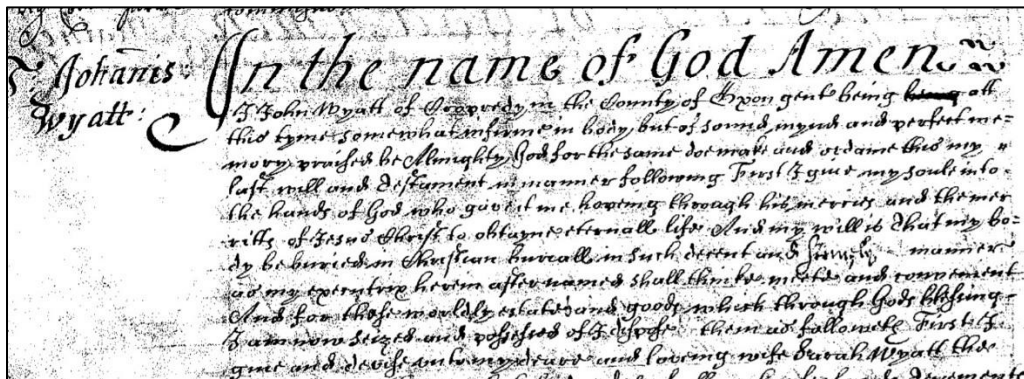 T. Johanis: Wyatt:
In the name of God Amen
I John Wyatt of Cropredy in the County of Oxon gent being att
this tyme somewhat infirme in body but of sound mynd and perfect me=
mory praised be Almighty God for the same doe make and ordaine this my
last will and Testament in manner following First I give my soule into
the hands of God who gave it me hopeing through his mercies and the mer
ritts of Jesus Christ to obtayne eternall life And my will is that my bo=
dy be buried in Christian buriall in such decent and manner
as my executrix herein after named shall thinke meete and convenient
And for those worldly estates and goods which through Gods blessing
I am now seized and possessed of I them as followeth First I
give and devise unto my deare and loveing wife Sarah Wyatt the